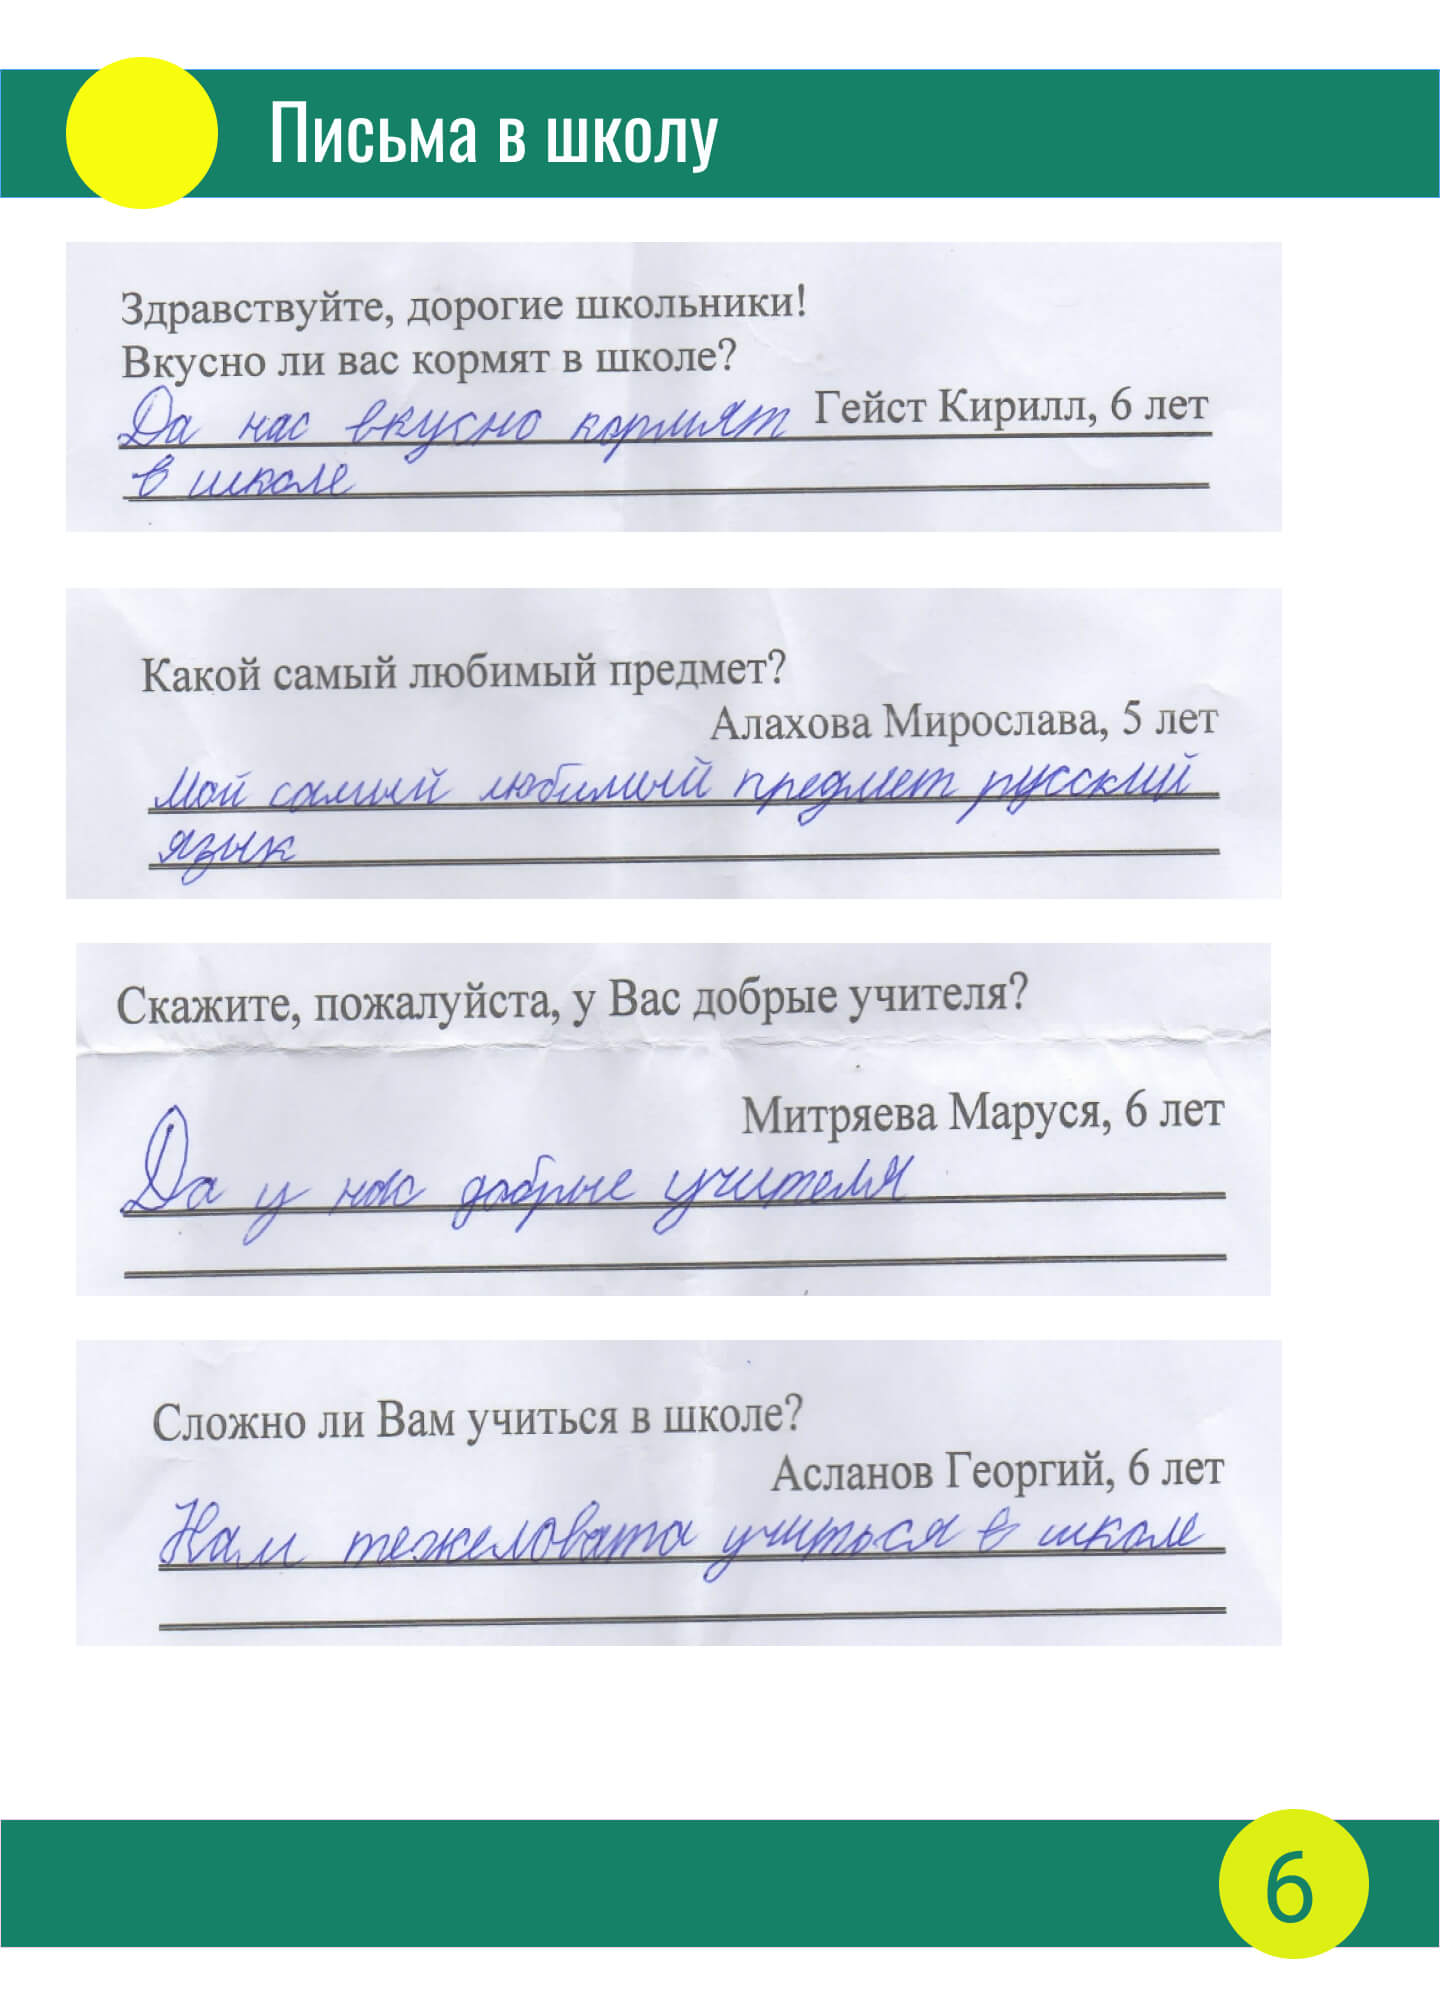 Письма в школу
Здравствуйте, дорогие школьники!
Вкусно ли вас кормят в школе?
Гейст Кирилл, 6 лет
Да нас вкусно кормят
в школе
Какой самый любимый предмет?
Алахова Мирослава, 5 лет
Мой самый любимый предмет русский
язык
Скажите, пожалуйста, у Вас добрые учителя?
Митряева Маруся, 6 лет
Да у нас добрые учителя
Сложно ли Вам учиться в школе?
Асланов Георгий, 6 лет
Нам тежеловата учиться в школе
6